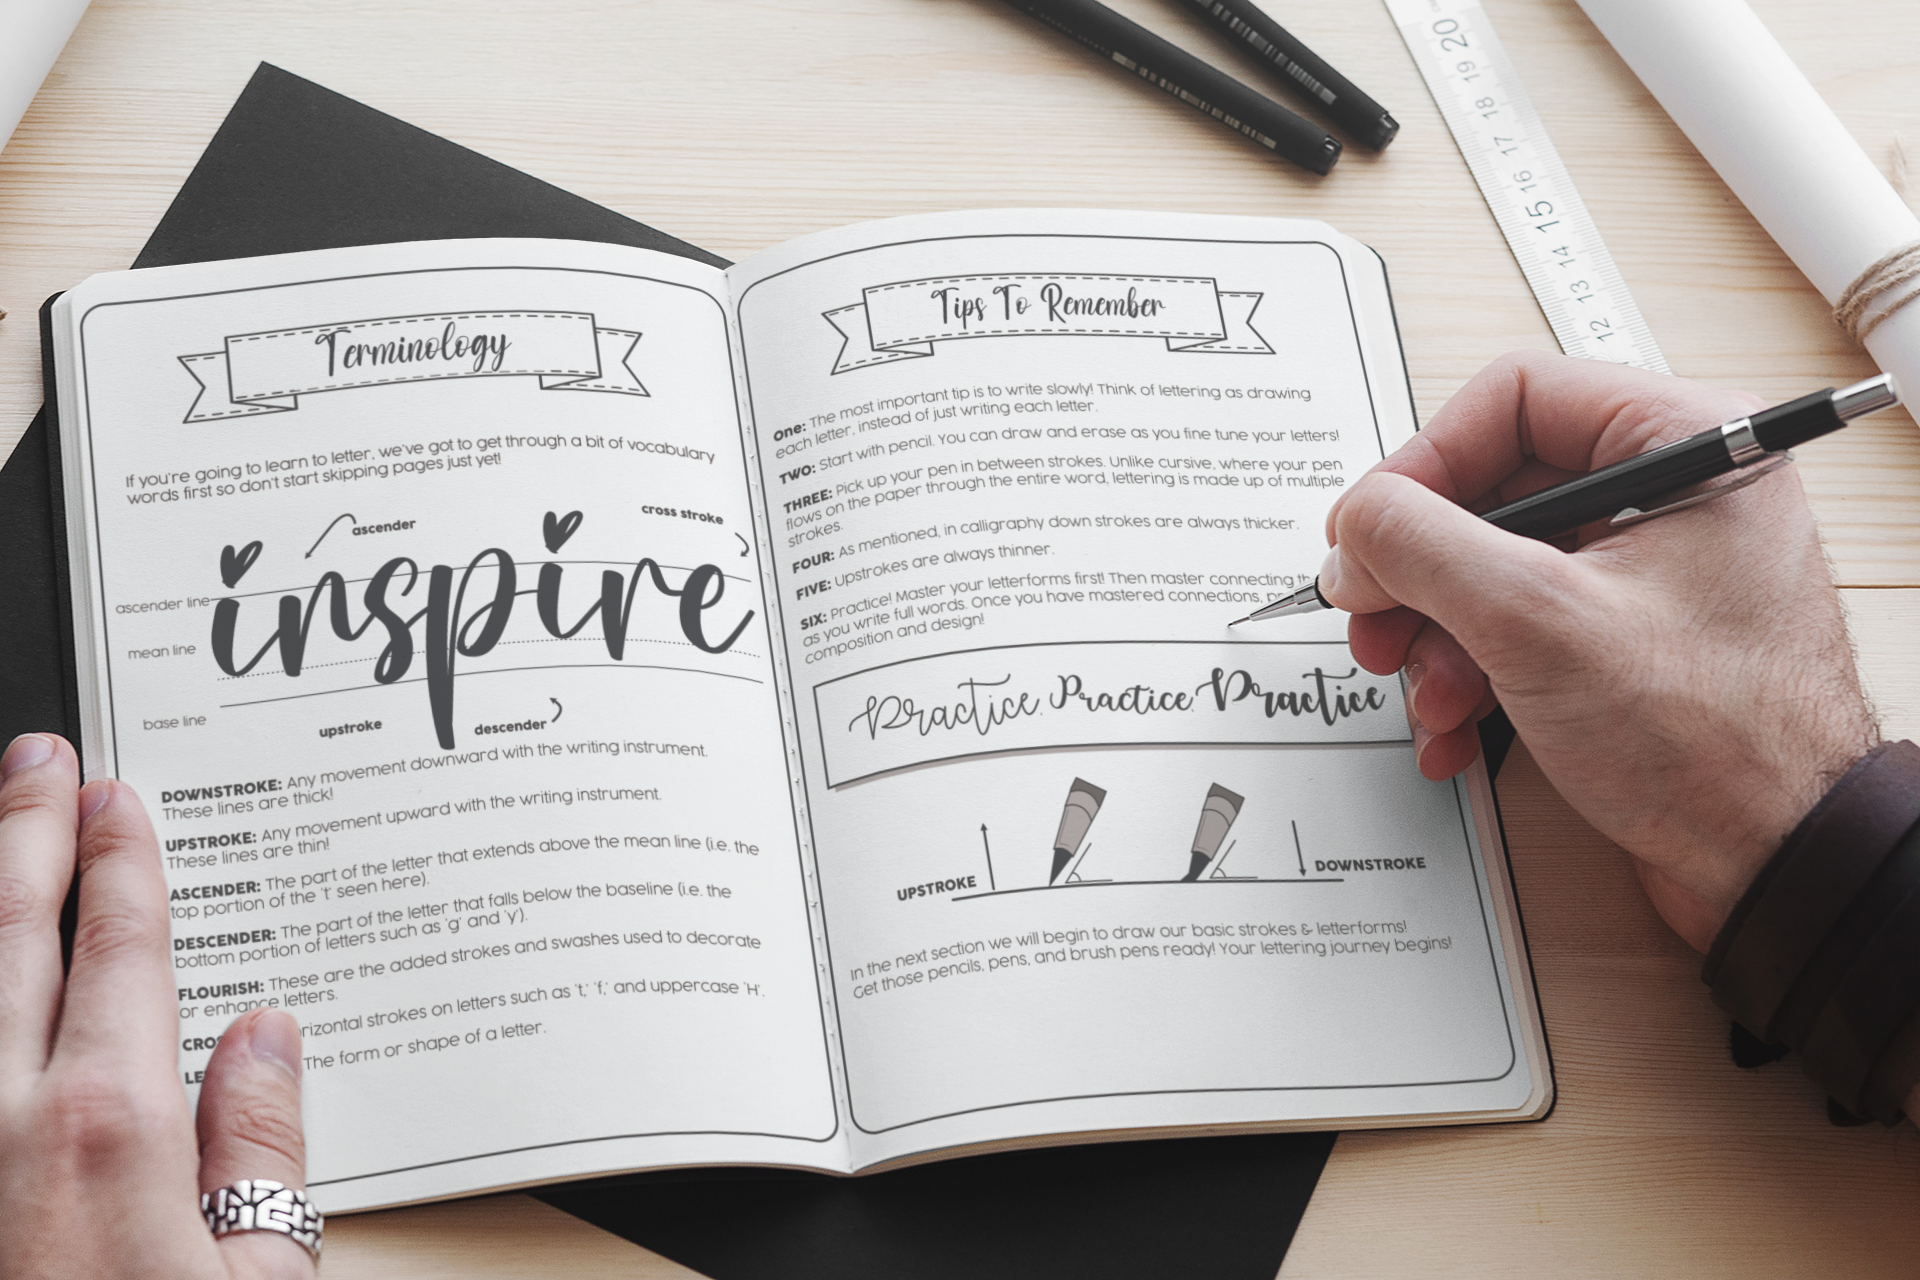 Terminology
If you're going to learn to letter, we've got to get through a bit of vocabulary
words first so don't start skipping pages just yet!
ascender
cross stroke
inspire
ascender line
mean line
base line
upstroke
descender
DOWNSTROKE: Any movement downward with the writing instrument.
These lines are thick!
UPSTROKE: Any movement upward with the writing instrument.
These lines are thin!
ASCENDER: The part of the letter that extends above the mean line (i.e. the
top portion of the 't' seen here).
DESCENDER: The part of the letter that falls below the baseline (i.e. the
bottom portion of letters such as 'g' and 'y').
FLOURISH: These are the added strokes and swashes used to decorate
or enhance letters.
strokes on letters such as 't,' 'f,' and uppercase 'H'.
The form or shape of a letter.
Tips To Remember
One: The most important tip is to write slowly! Think of lettering as drawing
each letter, instead of just writing each letter.
TWO: Start with pencil. You can draw and erase as you fine tune your letters!
THREE: Pick up your pen in between strokes. Unlike cursive, where your pen
flows on the paper through the entire word, lettering is made up of multiple
strokes.
FOUR: As mentioned, in calligraphy down strokes are always thicker.
FIVE: Upstrokes are always thinner.
SIX: Practice! Master your letterforms first! Then master connecting
as you write full words. Once you have mastered connections,
composition and design!
Practice, Practice, Practice
UPSTROKE
DOWNSTROKE
In the next section we will begin to draw our basic strokes & letterforms!
Get those pencils, pens, and brush pens ready! Your lettering journey begins!
20
19
18
17
16
15
14
13
12